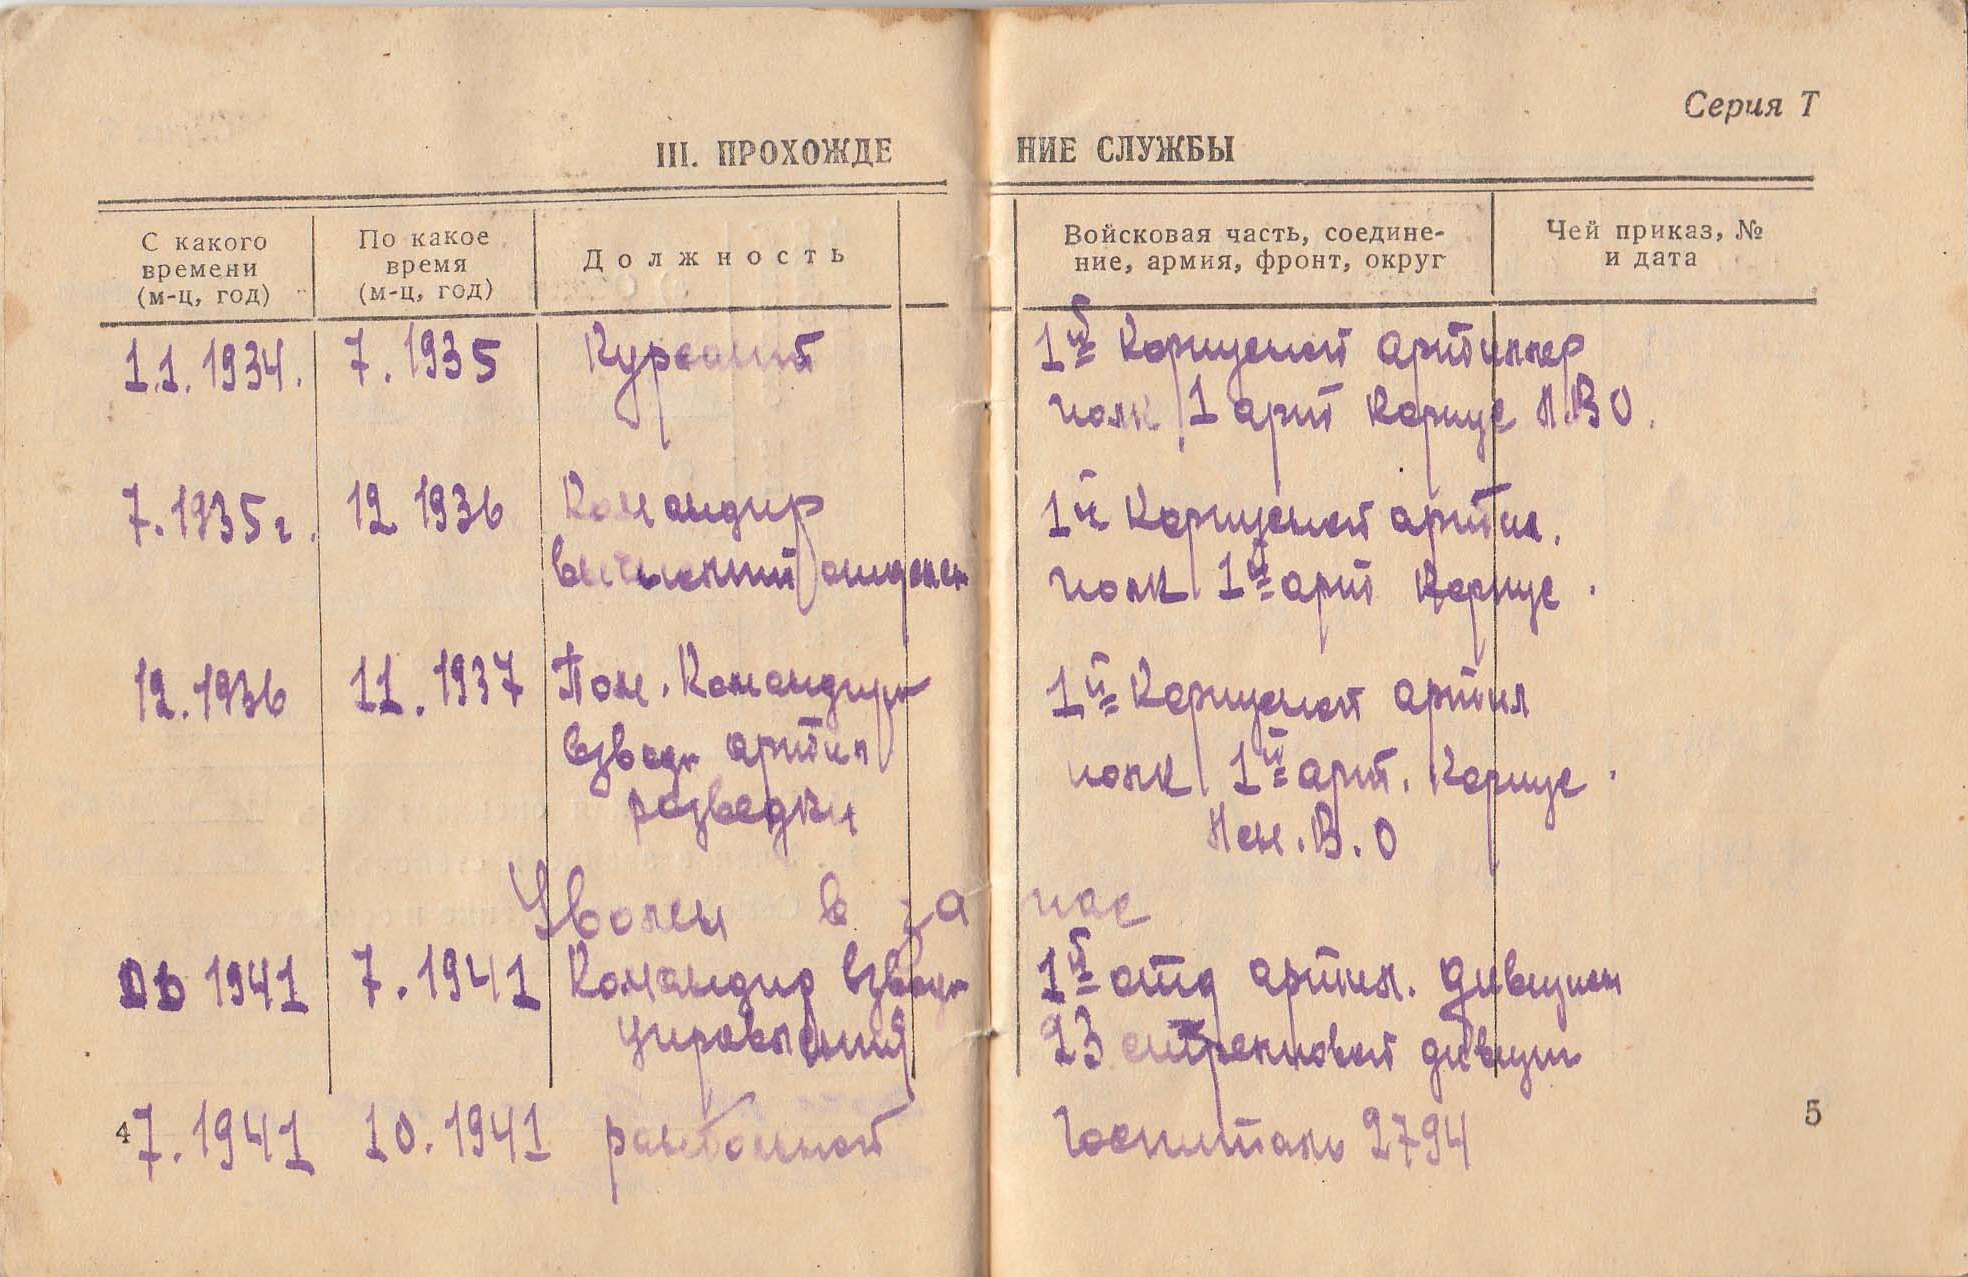 Серия Т
III. ПРОХОЖДЕНИЕ СЛУЖБЫ
С какого времени (м-ц, год)
По какое время (м-ц, год)
Должность
Войсковая часть, соедине-
ние, армия, фронт, округ
Чей приказ, №
и дата
1.1.1934. 7.1935 Курсант 1й Корпусной артиллер
полк 1 арт Корпус Л.В О.
7.1935г. 12 1936 Командир 1й Корпусной артил.
отделен полк 1й арт Корпус.
12.1936 11.1937 Пом. Командира 1й Корпусной артил
взвода артил полк 1й арт. Корпус.
разведки Лен.В.О
Уволен в запас
1941 7.1941 Командир взвода 1й отд артил. дивизион
управления 23 стрелковой дивизии
7.1941 10.1941 ранбольной Госпиталь 2794
4
5